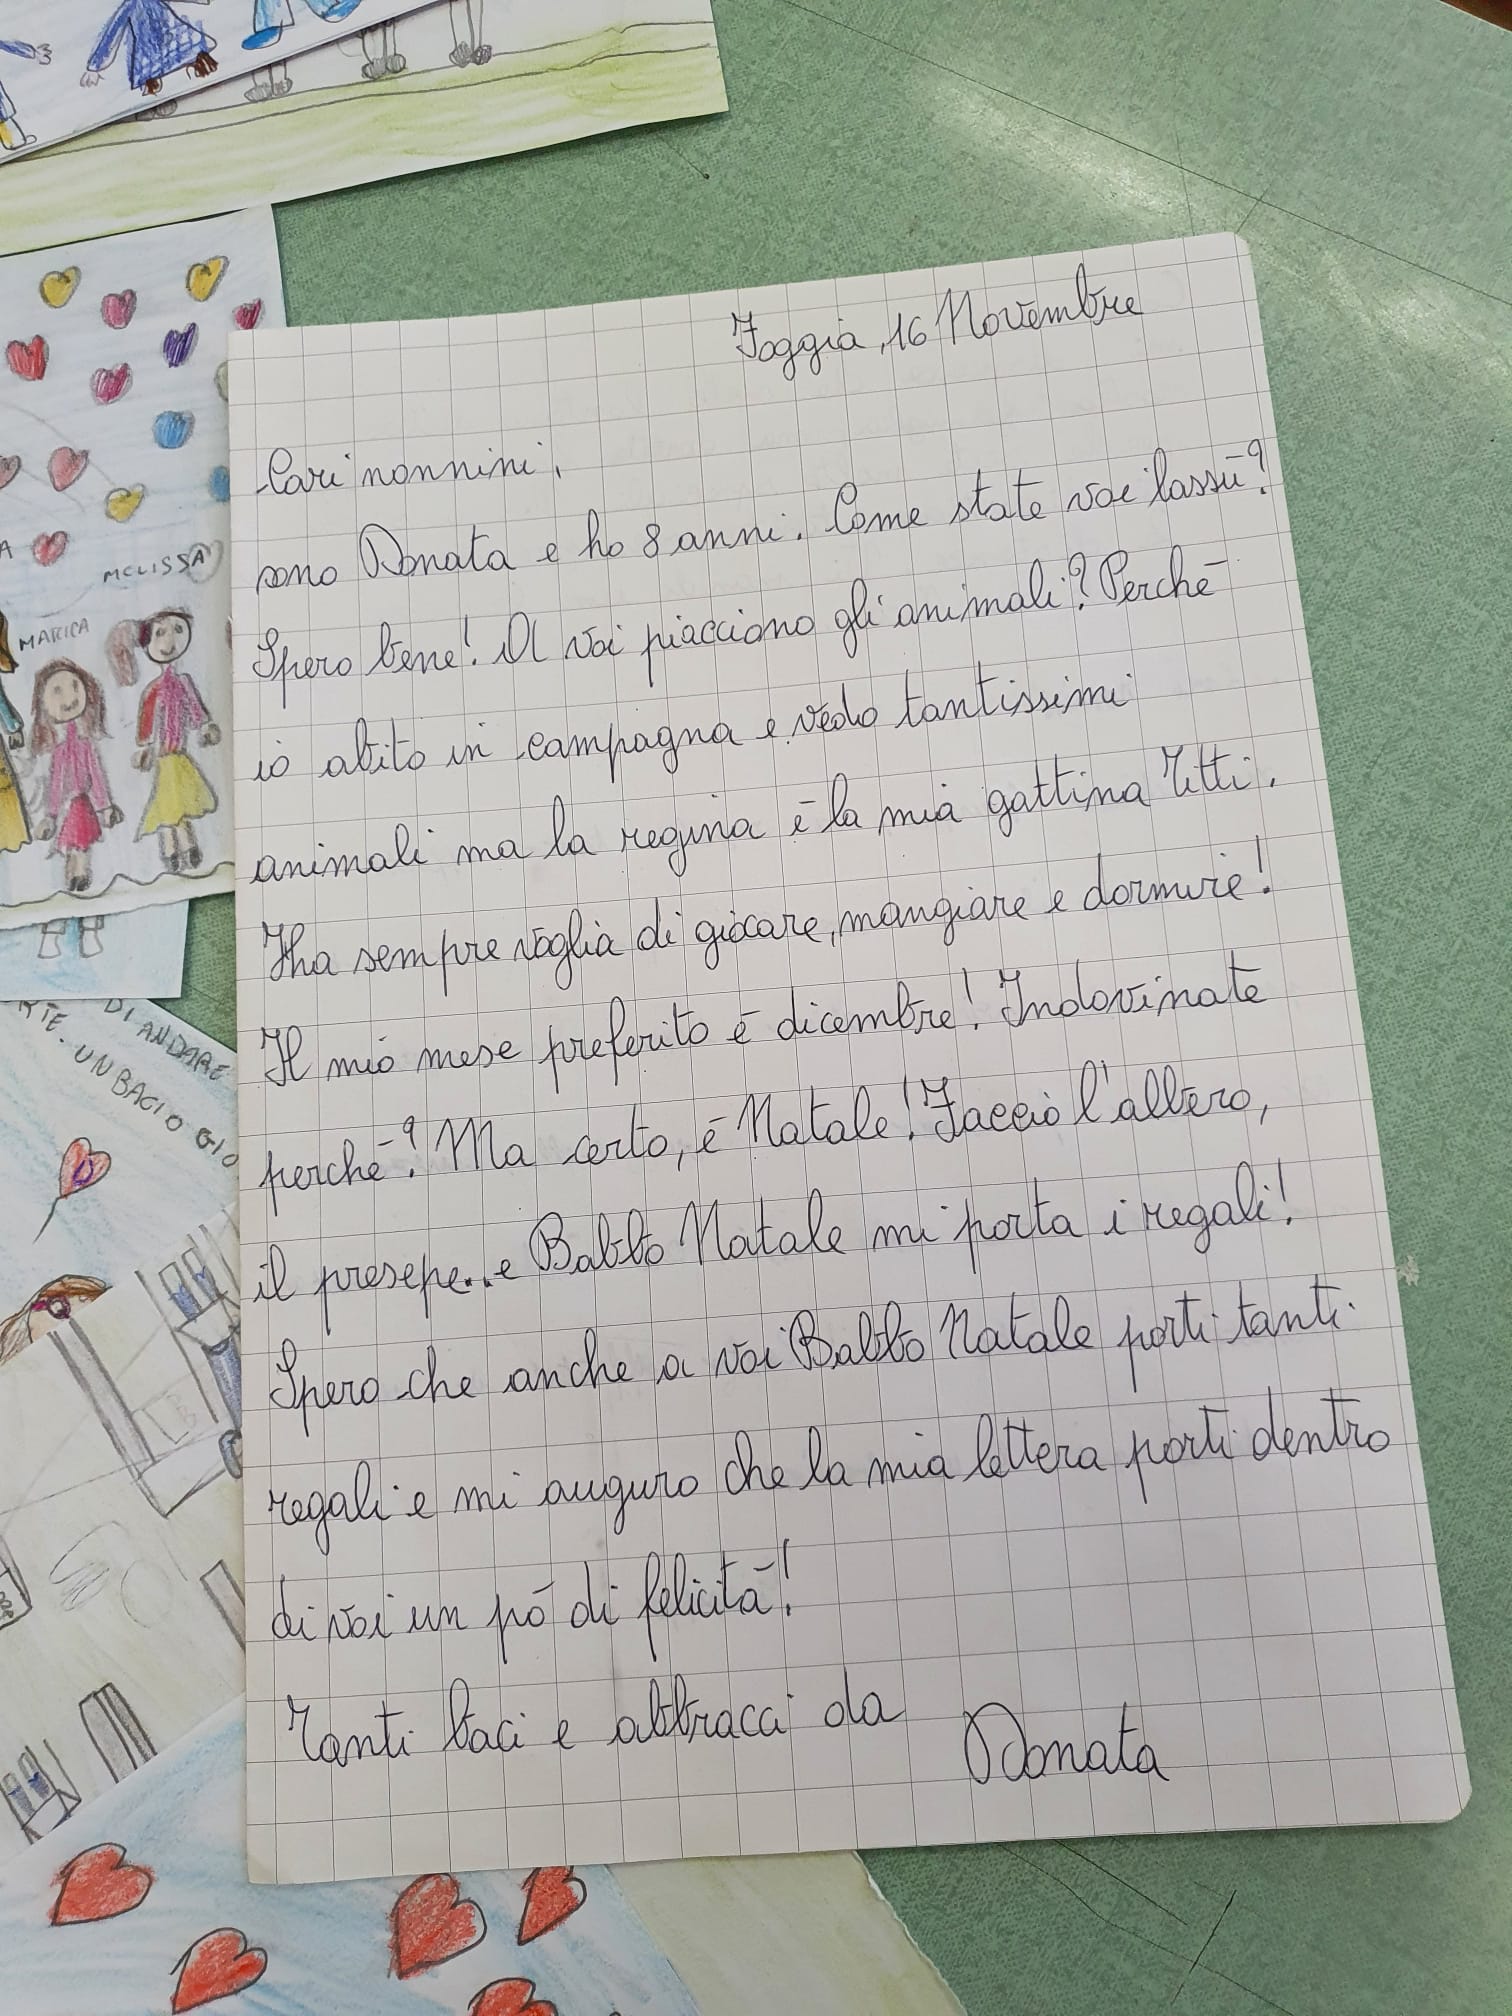 Foggia, 16 Novembre
Cari nonnini,
sono Donata e ho 8 anni. Come state voi lassù?
Spero bene! A voi piacciono gli animali? Perchē
io abito in campagna e vedo tantissimi
animali ma la regina ē la mia gattina Titti.
Ha sempre voglia di giocare, mangiare e dormire!
Il mio mese preferito ē dicembre! Indovinate
perchē? Ma certo, ē Natale! Faccio l'albero,
il presepe... e Babbo Natale mi porta i regali!
Spero che anche a voi Babbo Natale porti tanti
regali e mi auguro che la mia lettera porti dentro
di voi un pō di felicitā!
Tanti baci e abbracci da
Donata
A
MELISSA
MARICA
DI ANDARE
RTE. UN BACIO GIO